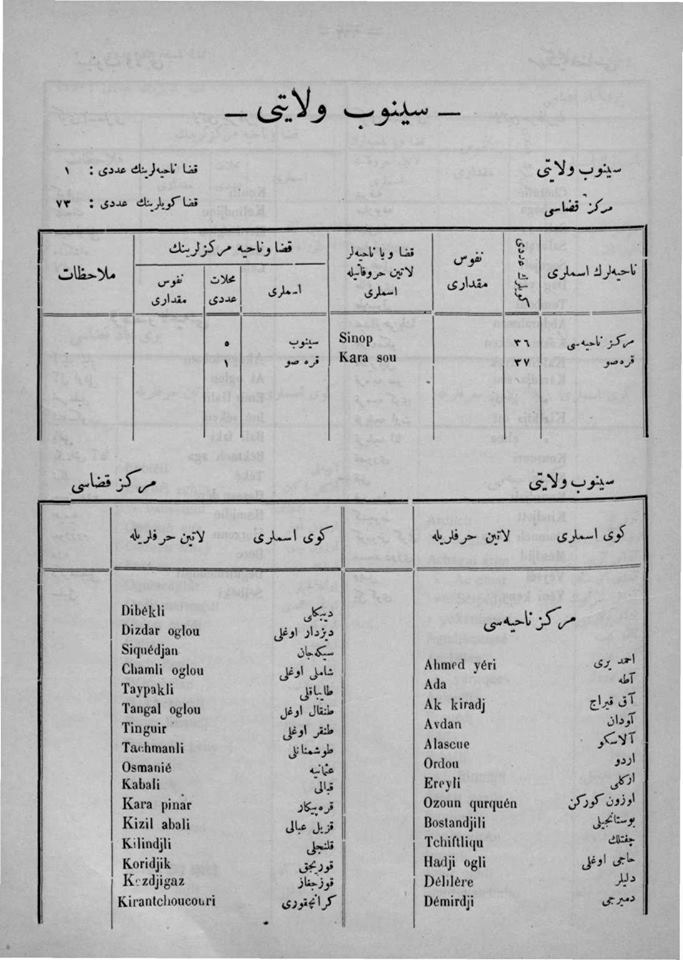 — سینوب ولایتی —
سینوب ولایتی
مركز قضاسی
قضا ناحیه‌لرینك عددی : ۱
قضا كویلرینك عددی : ۷۳
ناحیه‌لرك اسملری
كویلرك عددی
نفوس مقداری
قضا و یا ناحیه‌لر لاتین حروفاتیله اسملری
قضا و ناحیه مركزلرینك
اسملری
محلات عددی
نفوس مقداری
ملاحظات
مركز ناحیه‌سی ۳۶ Sinop سینوب ۵
قره صو ۳۷ Kara sou قره صو ۱
سینوب ولایتی
مركز قضاسی
كوی اسملری لاتین حرفلریله
مركز ناحیه‌سی
احمد یری Ahmed yéri
آطه Ada
آق قیراج Ak kiradj
آودان Avdan
آلاسكو Alascue
اردو Ordou
ارکلی Ereyli
اوزون كوركن Ozoun qurquén
بوستانجیلی Bostandjili
چفتلك Tchiftliqu
حاجی اوغلی Hadji ogli
دلیلر Délilère
دمیرجی Démirdji
كوی اسملری لاتین حرفلریله
دیبكلی Dibékli
دیزدار اوغلی Dizdar oglou
سیكه‌جان Siquédjan
شاملی اوغلی Chamli oglou
طایباقلی Taypakli
طنقال اوغل Tangal oglou
طنقر اوغلی Tinguir
طوشمنانلی Tachmanli
عثمانیه Osmanié
قبالی Kabali
قره‌پیكار Kara pinar
قزیل عبالی Kizil abali
قلنجلی Kilindjli
قوریجق Koridjik
قوزجغاز Kezdjigaz
كرانچقوری Kirantchoucouri